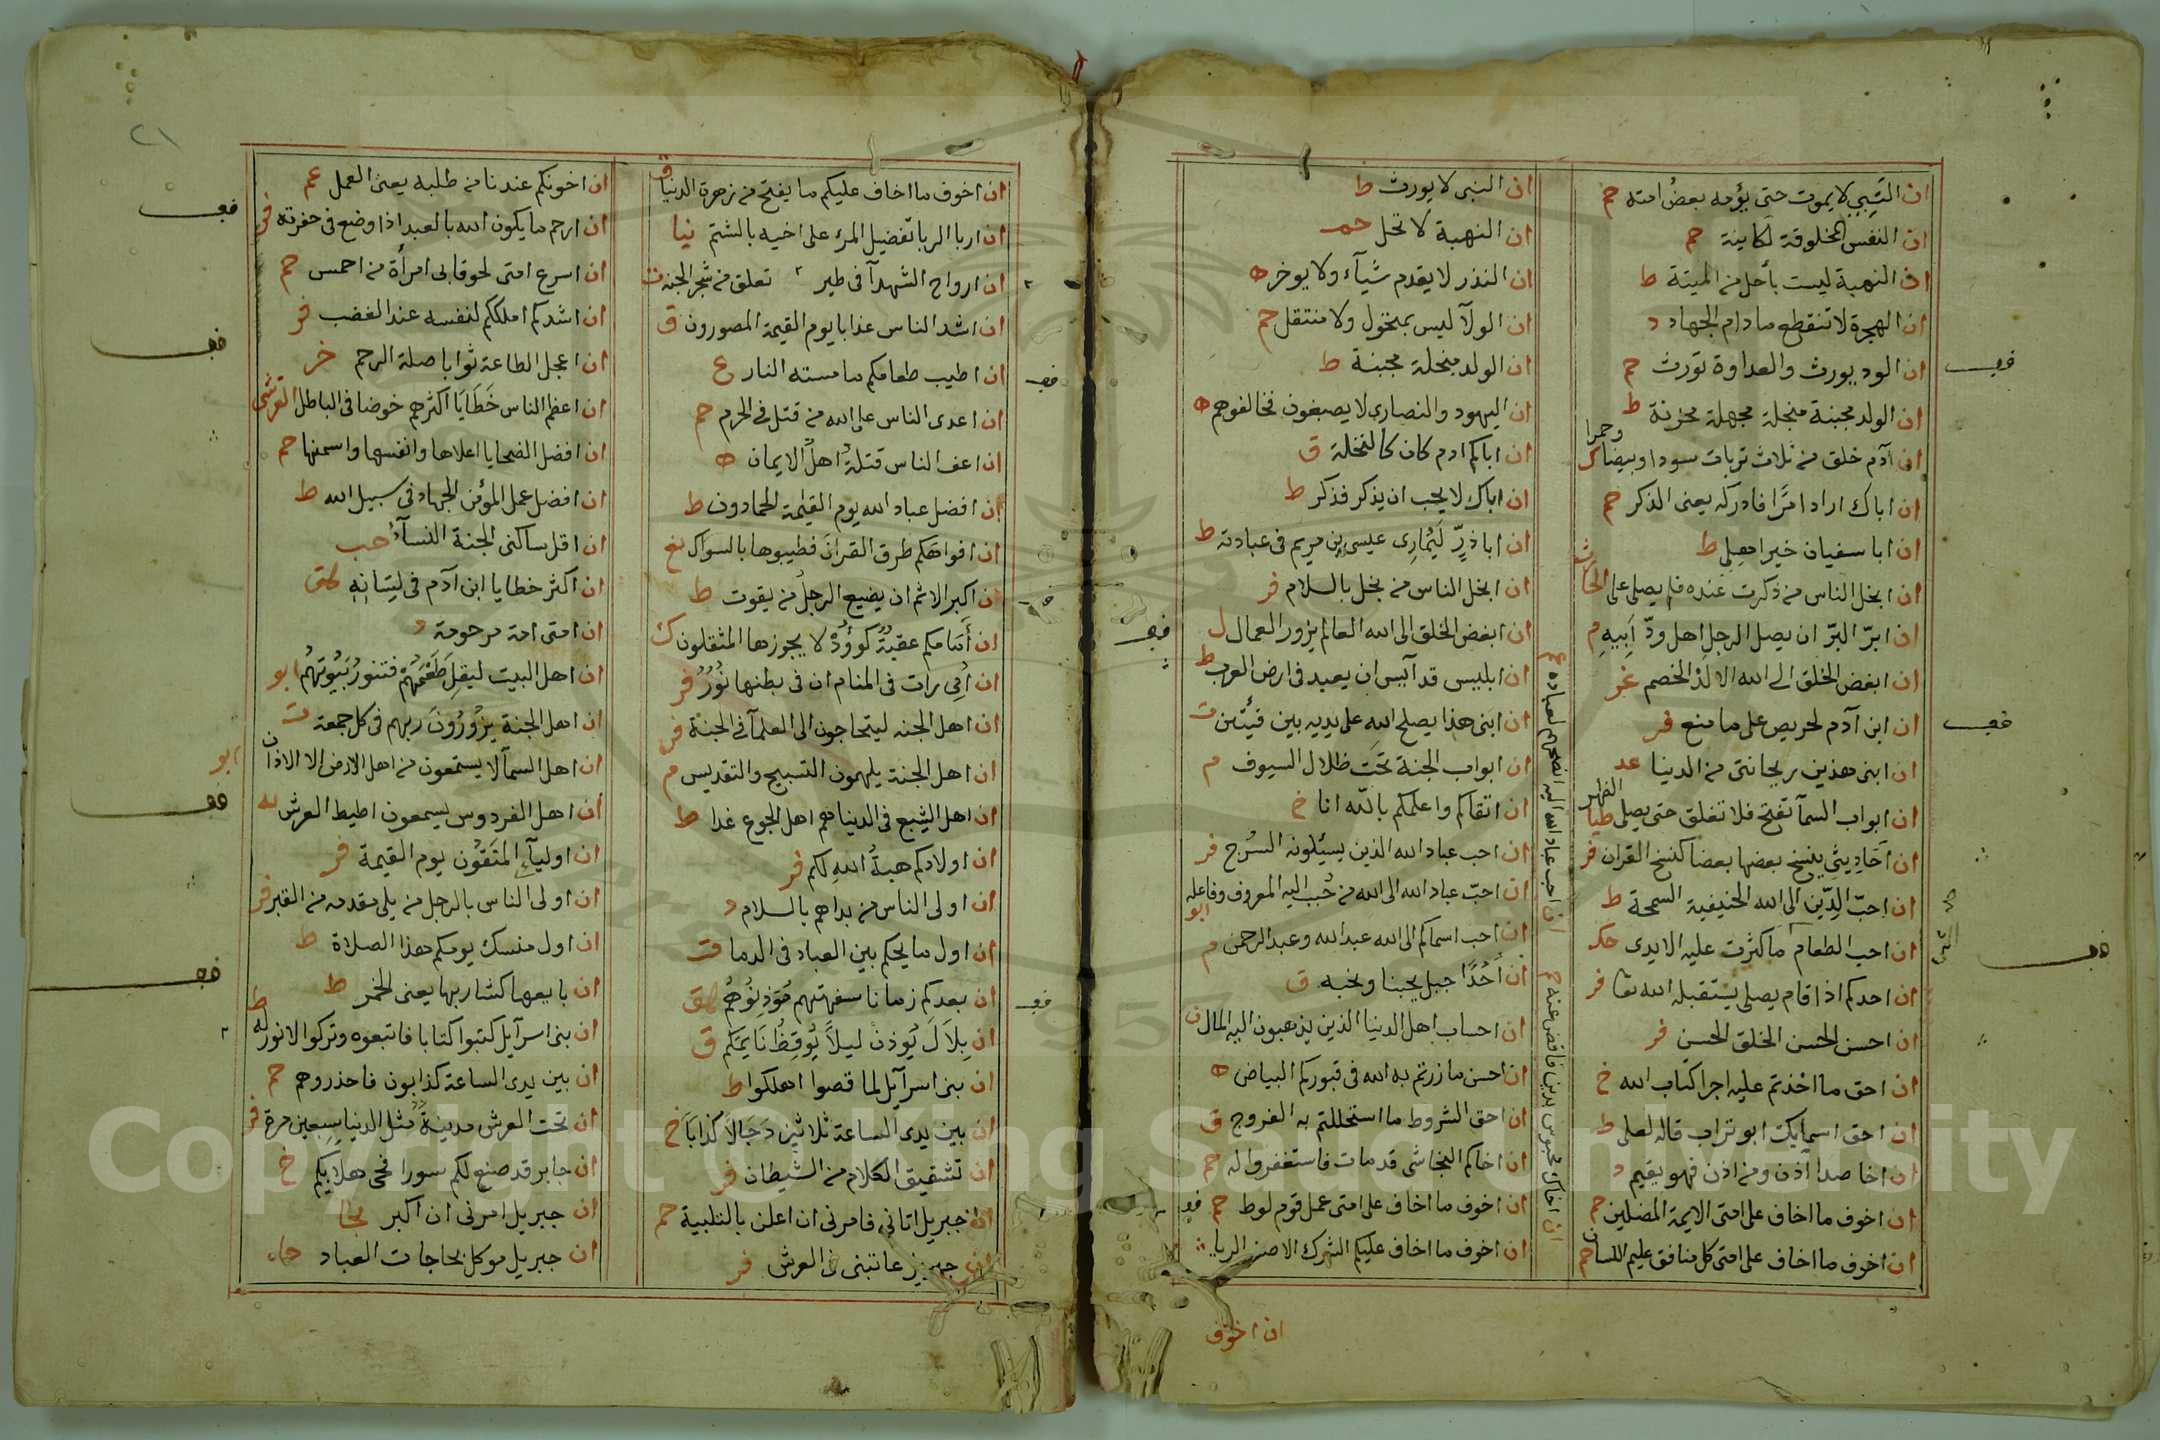 ان النبي لا يموت حتى يؤمه بعض امته حم
ان النفس المخلوقة لكاينة حم
ان النهبة ليست بأحل من الميتة ط
ان الهجرة لا تنقطع ما دام الجهاد د
ان الود يورث والعداوة تورث حم
ان الولد مجبنة مبخلة مجهلة محزنة ط
ان آدم خلق من ثلاث تربات سودا وبيضا وحمرا
ان اباك اراد امرًا فادركه يعنى الذكر حم
ان ابا سفيان خير اهلى ط
ان ابخل الناس من ذكرت عنده فلم يصلى على الحارث
ان ابرّ البرّ ان يصل الرجل اهل ودّ ابيه م
ان ابغض الخلق الى الله الالد الخصم غر
ان ابن آدم لحريص على ما منع فر
ان ابنى هذين ريحانتى من الدنيا عد
ان ابواب السمآ تفتح فلا تغلق حتى يصلى الظهر طيا
ان احاديثى ينسخ بعضها بعضا كنسخ القران فر
ان احبّ الدّين الى الله الحنيفية السمحة ط
ان احب الطعام ما كثرت عليه الايدى حك
ان احدكم اذا قام يصلى يستقبله الله تعا فر
ان احسن الحسن الخلق الحسن فر
ان احق ما اخذتم عليه اجرا كتاب الله خ
ان احق اسمايك ابو تراب قاله لعلى ط
ان اخا صدا اذن ومن اذن فهو يقيم د
ان اخوف ما اخاف على امتى الايمة المضلين حم
ان اخوف ما اخاف على امتى كل منافق عليم اللسان حم
ان احب عباد الله اليه انصحهم لعباده عم
ان اخاك محبوس بدينه فاقض عنه حم
ان النبى لا يورث ط
ان النهبة لا تحل حم
ان النذر لا يقدم شيآء ولا يوخر ه
ان الولآ ليس بمتحول ولا منتقل حم
ان الولد مبخلة مجبنة ط
ان اليهود والنصارى لا يصبغون فخالفوهم ه
ان اباكم ادم كان كالنخلة ق
ان اباك لا يحب ان يذكر فذكر ط
ان ابا ذرّ ليُمارى عيسى بن مريم فى عبادته ط
ان ابخل الناس من بخل بالسلام فر
ان ابغض الخلق الى الله العالم يزور العمال ل
ان ابليس قد آيس ان يعبد فى ارض العرب ط
ان ابنى هذا يصلح الله على يديه بين فيئتين ت
ان ابواب الجنة تحت ظلال السيوف م
ان اتقاكم واعلمكم بالله انا خ
ان احب عباد الله الذين يسئلونه السُرج فر
ان احبّ عباد الله الى الله من حُبب اليه المعروف وفاعله ابو
ان احب اسماكم الى الله عبد الله وعبد الرحمن م
ان اُحُدًا جبل يحبنا ونحبه ق
ان احساب اهل الدنيا الذين يذهبون اليه المال ن
ان احسن ما زرتم به الله فى قبوركم البياض ه
ان احق الشروط ما استحللتم به الفروج ق
ان اخاكم النجاشى قد مات فاستغفروا له حم
ان اخوف ما اخاف على امتى عمل قوم لوط حم
ان اخوف ما اخاف عليكم الشرك الاصغر الريا
ان اخوف
ان اخوف ما اخاف عليكم ما يفتح من زهرة الدنيا ق
ان اربا الربا تفضيل المرء على اخيه بالشتم نيا
ان ارواح الشهدآ فى طير تعلق من شجر الجنة ت
ان اشد الناس عذابا يوم القيمة المصورون ق
ان اطيب طعامكم ما مسته النار ع
ان اعدى الناس على الله من قتل فى الحرم حم
ان اعف الناس قتلةً اهلُ الايمان ه
ان افضل عباد الله يوم القيمة الحمادون ط
ان افواهكم طرق القران فطيبوها بالسواك نع
ان اكبر الاثم ان يضيع الرجل من يقوت ط
ان أمامكم عقبةً كوؤدً لا يجوزها المثقلون ك
ان اُمى رات فى المنام ان فى بطنها نُورٌ فر
ان اهل الجنه ليتحاجون الى العلمآ فى الجنة فر
ان اهل الجنة يلهمون التسبيح والتقديس م
ان اهل الشبع فى الدنيا هم اهل الجوع غدا ط
ان اولادكم هبةُ الله لكم فر
ان اولى الناس من بداهم بالسلام د
ان اول ما يحكم بين العباد فى الدما ت
ان بعدكم زمانا سفهتهم مُوذنُوهُم هق
ان بِلاَلَ يُوذن ليلاً يُوقظُ نايمكم ق
ان بنى اسرآيل لما قصوا اهلكوا ط
ان بين يدى الساعة ثلاثين دَجالاً كذابًا خ
ان تشقيق الكلام من الشيطان فر
ان جبريل اتانى فامرنى ان اعلن بالتلبية حم
ان فى العرش فر
ان اخونكم عندنا من طلبه يعنى العمل عم
ان ارحم ما يكون الله بالعبد اذا وضع فى حفرته فر
ان اسرع امتى لحوقا بى امرأة من احمس حم
ان اشدكم املككم لنفسه عند الغضب فر
ان اعجل الطاعة ثوابا صلة الرحم خر
ان اعظم الناس خَطَايَا اكثرهم خوضا فى الباطل القرشى
ان افضل الضحايا اعلاها وانفسها واسمنها حم
ان افضل عمل المؤمن الجهاد فى سبيل الله ط
ان اقل ساكنى الجنة النسآء حب
ان اكثر خطايا ابن آدم فى لسانه
ان امتى امة مرحومة د
ان اهل البيت ليقل طعمهم فتنور بُيُوتهُم ابو
ان اهل الجنة يزُورُونَ ربهم فى كل جمعة ت
ان اهل السمآ لا يستمعون من اهل الارض الا الاذان ابو
ان اهل الفردوس ليسمعون اطيط العرش
ان اوليآء المتقُون يوم القيمة فر
ان اولى الناس بالرجل من يلى مقدمه من القبر فر
ان اول منسك يومكم هذا الصلاة ط
ان بايعها كشاربها يعنى الخمر ط
ان بنى اسرآيل كتبوا كتابا فاتبعوه وتركوا لانوراه ط
ان بين يدى الساعة كذابون فاحذروهم حم
ان تحت العرش مدينةً مثل الدنيا سبعين مرة فر
ان جابر قد صنع لكم سورا فحى هلا بكم خ
ان جبريل امرنى ان اكبر
ان جبريل موكل بحاجات العباد
٢١
Copyright © King Saud University